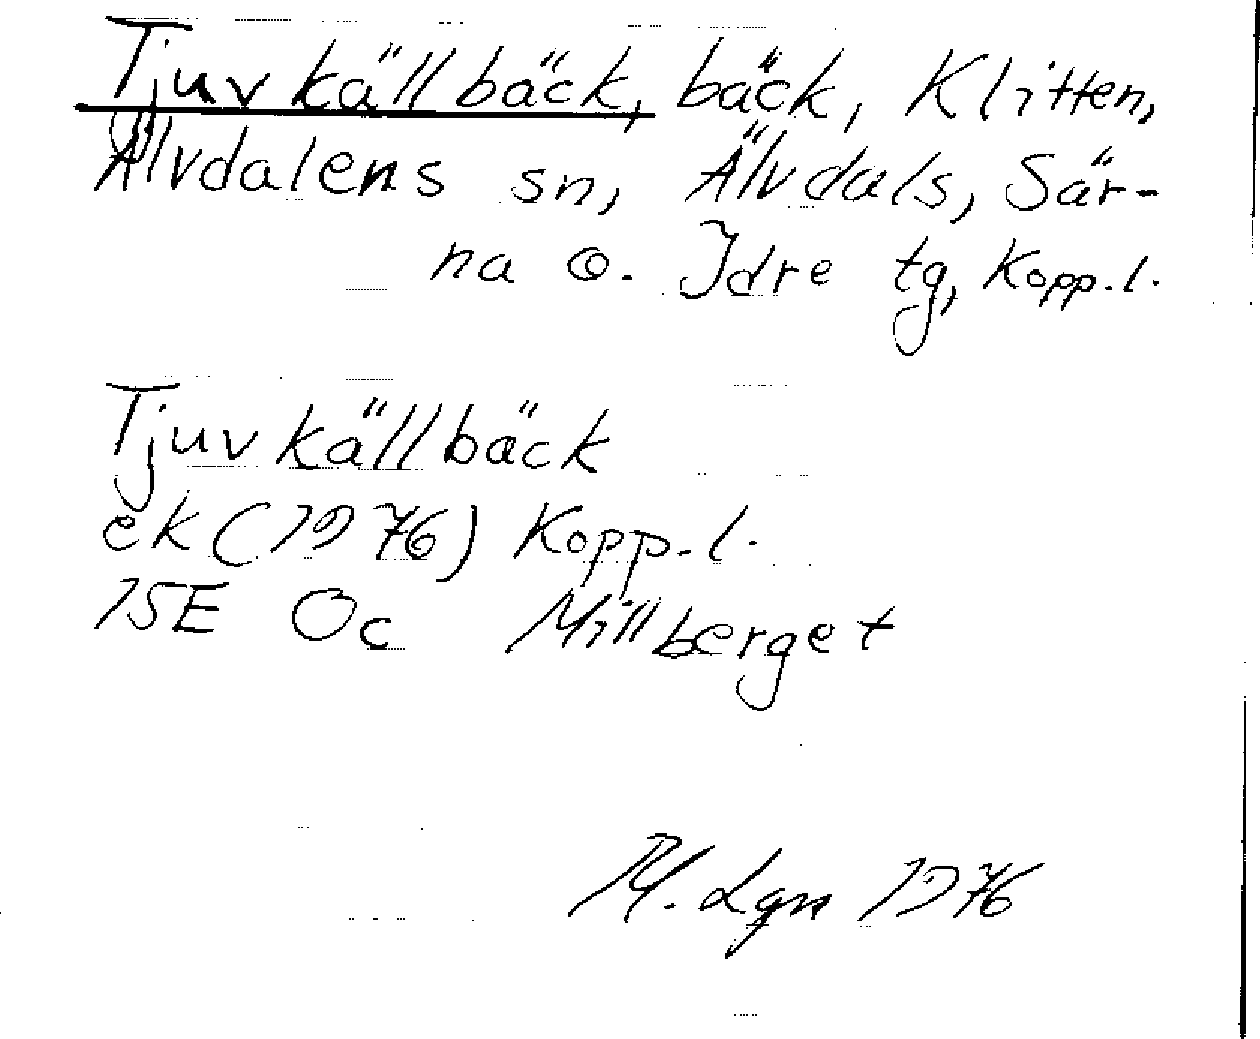 Tjuvkällbäck, bäck, Klitten,
Älvdalens sn, Älvdals, Sär-
na o. Idre tg, Kopp.l.
Tjuvkällbäck
ek(1976) Kopp.l.
15E Oc Millberget
M. Lgn 1976